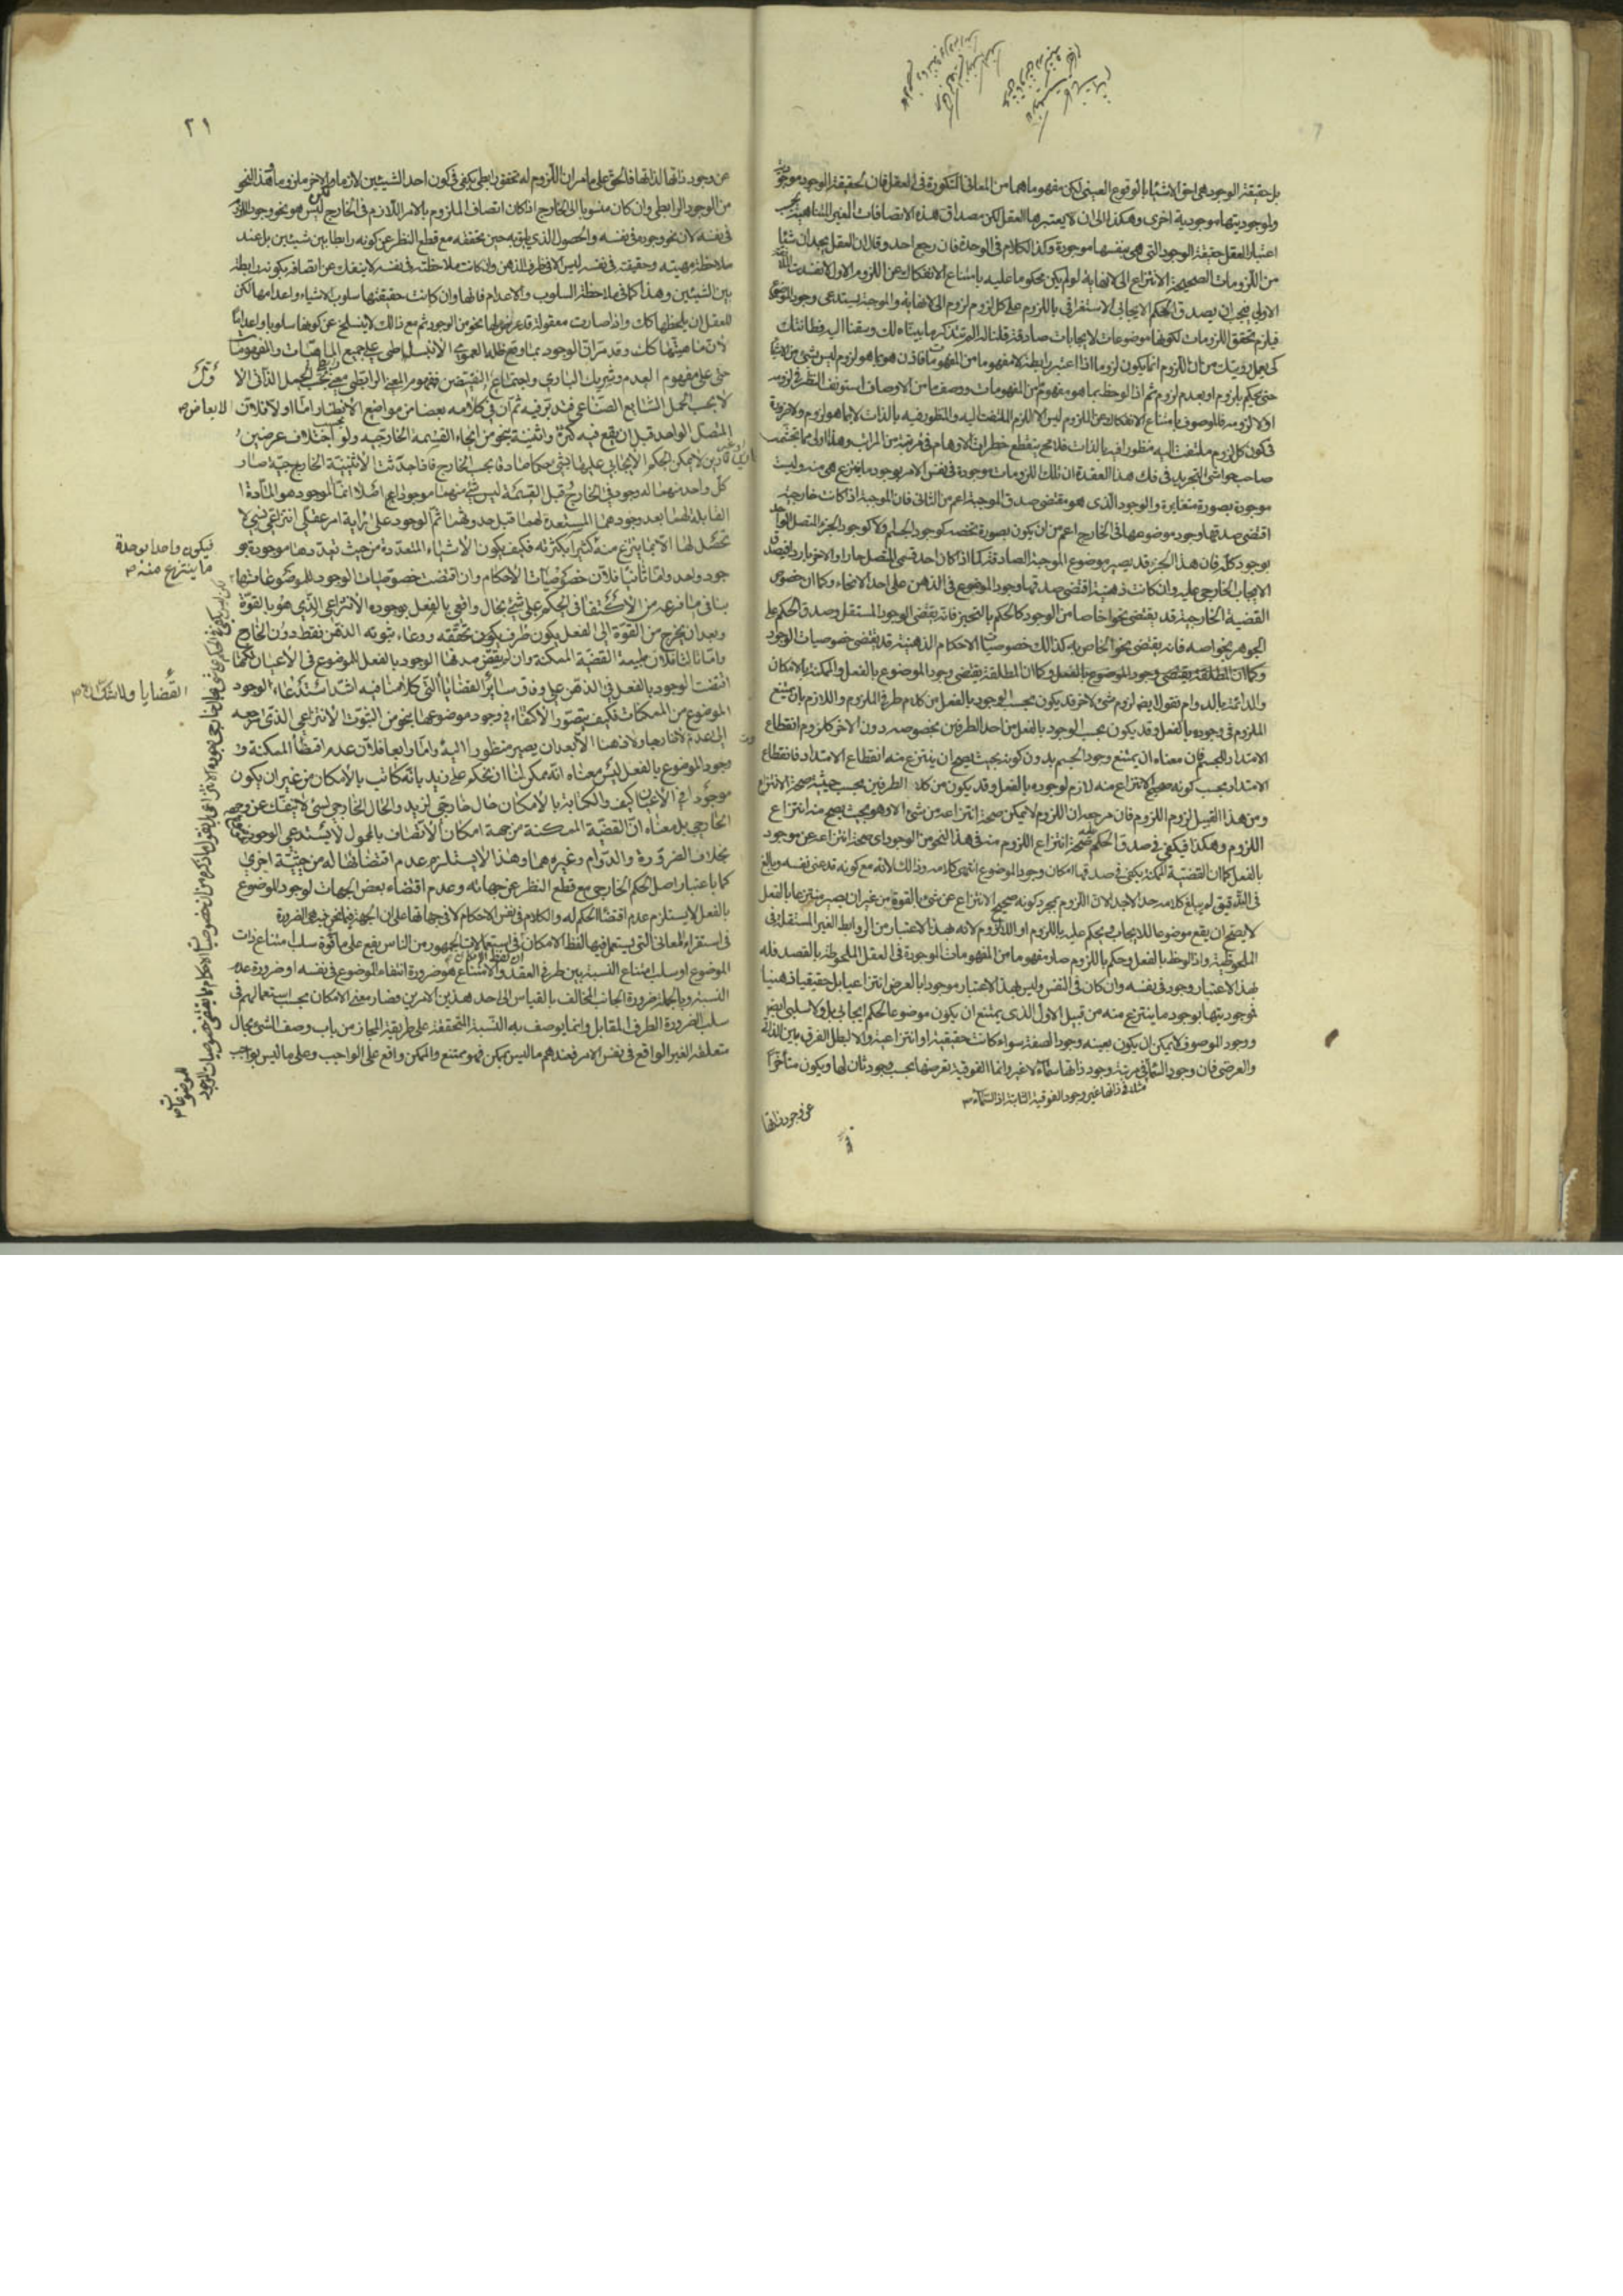 بل حقيقة الوجود هى احق الاشياء بالوقوع العينى لكن مفهومها من المعانى المتكررة فى العقل فان لحقيقة الوجود موجودية
ولموجوديتها موجودية اخرى وهكذا الى ان لا يعتبرها العقل لكن مصداق هذه الاتصافات الغير المتناهية بحسب
اعتبار العقل حقيقة الوجود التى هى بنفسها موجودة وكذا الكلام فى الوحدة فان رجع احد وقال ان العقل يجد ان شيئا
من اللزومات الصحيحة الانتزاع الى لا نهاية لو لم يكن محكوما عليه بامتناع الانفكاك عن اللزوم الاول لانفسدت الملازمة
الاولى فيجب ان يصدق الحكم الايجابى الاستغراقى باللزوم على كل لزوم لزوم الى لا نهاية والموجبة يستدعى وجود الموضوع
فيلزم تحقق اللزومات لكونها موضوعات لايجابات صادقة قلنا له المرتذكر ما بيناه لك وسقنا اليه فطانتك
كى يعمل رويتك من ان اللزوم انما يكون لزوما اذا اعتبر رابطة لا مفهوما من المفهومات فاذن هو بما هو لزوم ليس شئ من الاشياء
حتى يحكم بلزوم او بعدم لزوم ثم اذا لوحظ بما هو مفهوم من المفهومات ووصف ما من الاوصاف استونف النظر فى لزومه
او لا لزومه فالموصوف بامتناع الانفكاك عن اللزوم ليس الا اللزوم الملتفت اليه والمنظور فيه بالذات لا بما هو لزوم ولا ضرورة
فى كون كل لزوم ملتفتا اليه منظورا فيه بالذات فلا محة ينقطع خطرات الاوهام فى مرتبة من المراتب وهذا اولى مما تجشمه
صاحب حواشى التجريد فى فك هذا العقدة ان تلك اللزومات موجودة فى نفس الامر بوجود ما ينتزع هى منه وليست
موجودة بصورة متغايرة والوجود الذى هو مقتضى صدق الموجبة اعم من الثانى فان الموجبة اذا كانت خارجية
اقتضى صدقها وجود موضوعها فى الخارج اعم من ان يكون بصورة تخصه كوجود الجسم او لا كوجود الجزء المتصل الواحد
بوجود كله فان هذا الجزء قد يصير موضوع الموجبة الصادقة كما اذا كان احد قسمى المتصل حارا والاخر باردا فيصدق
الايجاب الخارجى عليه وان كانت ذهنية اقتضى صدقها وجود الموضوع فى الذهن على احد الانحاء وكما ان خصوص
القضية الخارجية قد يقتضى نحوا خاصا من الوجود كالحكم بالتحيز فانه يقتضى الوجود المستقل وصدق الحكم على
الجوهر بخواصه فانه يقتضى نحوا خاصا به كذلك خصوصيات الاحكام الذهنية قد يقتضى خصوصيات الوجود
وكما ان المطلقة يقتضى وجود الموضوع بالفعل وكما ان المطلقة يقتضى وجود الموضوع بالفعل والممكنة بالامكان
والدائمة بالدوام نقول ايضا لزوم شئ لاخر قد يكون بحسب الوجود بالفعل من كلا طرفى الملزوم واللازم بان يمتنع
الملزوم فى وجوده بالفعل وقد يكون بحسب الوجود بالفعل من احد الطرفين بخصوصه دون الاخر كلزوم انقطاع
الامتداد للجسم فان معناه ان يمتنع وجود الجسم بدون كونه بحيث يصح ان ينتزع منه انقطاع الامتداد فانقطاع
الامتداد بحسب كونه صحيح الانتزاع منه لازم لوجوده بالفعل وقد يكون من كلا الطرفين بحسب حيثية صحة الانتزاع
ومن هذا القبيل لزوم اللزوم فان مرجعه ان اللزوم لا يمكن صحة انتزاعه من شئ الا وهو بحيث يصح منه انتزاع
اللزوم وهكذا فيكفى فى صدق الحكم صحة انتزاع اللزوم منه فى هذا النحو من الوجود اى صحة انتزاعه عن موجود
بالفعل كما ان القضية الممكنة يكفى فى صدقها امكان وجود الموضوع انتهى كلامه وذلك لانه مع كونه قد عنى نفسه وبالغ
فى التدقيق لم يبلغ كلامه حد الاجداء لان اللزوم بمجرد كونه صحيح الانتزاع عن شئ بالقوة من غير ان يصير منتزعا بالفعل
لا يصح ان يقع موضوعا للايجاب ويحكم عليه باللزوم او اللالزوم لانه بهذا الاعتبار من الروابط الغير المستقلة فى
الملحوظية واذا لوحظ بالفعل وحكم باللزوم صار مفهوما من المفهومات الموجودة فى العقل الملحوظة بالقصد فله
بهذا الاعتبار وجود فى نفسه وان كان فى النفس وليس بهذا الاعتبار موجودا بالعرض انتزاعيا بل حقيقيا ذهنيا
فموجوديتها بوجود ما ينتزع منه من قبيل الاول الذى يمتنع ان يكون موضوعا لحكم ايجابى بل ولا سلبى ايضا
ووجود الموصوف لا يمكن ان يكون بعينه وجود الصفة سواء كانت حقيقية او انتزاعية والا لبطل الفرق بين الذاتى
والعرضى فان وجود السماء فى مرتبة وجود ذاتها سماء لا غير وانما الفوقية تعرضها بحسب وجود ثان لها ويكون متأخرا
مثلا فى ذاتها غير وجود الفوقية الثابتة اذ السماء
عن وجود ذاتها
٢١
عن وجود ذاتها لذاتها فالحق على ما مر ان اللزوم له تحقق رابطى يكفى فى كون احد الشيئين لازما والاخر ملزوما وهذا النحو
من الوجود الرابطى وان كان منسوبا الى الخارج اذا كان اتصاف الملزوم بالامر اللازم فى الخارج لكن ليس هو نحو وجود اللزوم
فى نفسه لان نحو وجوده فى نفسه والحصول الذى يليق به حين تحققه مع قطع النظر عن كونه رابطا بين شيئين بل عند
ملاحظة مهيته وحقيقته فى نفسه ليس الا فى ظرف الذهن وان كانت ملاحظته فى نفسه لا ينفك عن اتصافه بكونه رابطة
بين الشيئين وهذا كما فى ملاحظة السلوب والاعدام فانها وان كانت حقيقتها سلوب الاشياء واعدامها لكن
للعقل ان يلحظها كك واذا صارت معقولة قد عرض لها نحو من الوجود ثم مع ذلك لا ينسلخ عن كونها سلوبا واعداما
لان ماهيتها كك وقد مر ان الوجود مما وقع ظله العمومى الانبساطى على جميع الماهيات والمفهومات
حتى على مفهوم العدم وشريك البارى واجتماع النقيضين فمفهوم المعنى الرابطى معنى رابطى بحسب الحمل الذاتى الا
لا بحسب الحمل الشايع الصناعى فتدبر فيه ثم ان فى كلامه بعضا من مواضع الانظار اما اولا فلان
لابعاض
المتصل الواحد قبل ان يقع فيه كثرة واثنينية بنحو من انحاء القسمة الخارجية ولو اختلاف عرضين
قارين لا يمكن الحكم الايجابى عليها بشئ حكما صادقا بحسب الخارج فاذا حدثت الاثنينية الخارجية صار
كل واحد منهما له وجود فى الخارج وقبل القسمة ليس شئ منهما موجودا اصلا انما الموجود هو المادة
القابلة لهما بعد وجودهما المستعدة لهما قبل حدوثهما ثم الوجود على رايه امر عقلى انتزاعى نسبى لا
تحصل لها الا بما ينتزع منه كثيرا بكثرته فكيف يكون الاشياء المتعددة من حيث تعددها موجودة بو
فيكون واحدا بوحدة
ما ينتزع منه
جود واحد واما ثانيا فلان خصوصيات الاحكام وان اقتضت خصوصيات الوجود للموضوعات
ينافى ما فرعه من الاكتفاء فى الحكم على شئ بحال واقعى بالفعل بوجوده الانتزاعى الذى هو بالقوة
وبعد ان يخرج من القوة الى الفعل يكون ظرف يكون تحققه ووعاء ثبوته الذهن فقط دون الخارج
واما ثالثا فلان طبيعة القضية الممكنة وان لم يقتض صدقها الوجود بالفعل للموضوع فى الاعيان لكنها
اقتضت الوجود بالفعل فى الذهن على وفق سائر القضايا التى كلامنا فيه اشد استدعاء لوجود
القضايا ولا شك ان
الموضوع من الممكنات فكيف يتصور الاكتفاء فى وجود موضوعها بنحو من الثبوت الانتزاعى الذى مرجعه
الى عدم الشئ خارجا وذهنا الا بعد ان يصير منظورا اليه واما رابعا فلان عدم اقتضاء الممكنة
وجود الموضوع بالفعل ليس معناه انه يمكن لنا ان نحكم على زيد بانه كاتب بالامكان من غير ان يكون
موجودا فى الاعيان كيف والكتابة بالامكان حال خارجى لزيد والحال الخارجى لشئ لا ينفك عن وجوده
الخارجى بل معناه ان القضية الممكنة من جهة امكان الاتصاف بالمحمول لا يستدعى الوجود
بخلاف الضرورة والدوام وغيرهما وهذا لا يستلزم عدم اقتضائها له من حيثية اخرى
كما باعتبار اصل الحكم الخارجى مع قطع النظر عن جهاته وعدم اقتضاء بعض الجهات لوجود الموضوع
بالفعل لا يستلزم عدم اقتضاء الحكم له والكلام فى نفس الاحكام لا فى جهاتها على ان الجهة فيما نحن فيه هى الضرورة
فى استقراء المعانى التى يستعمل فيها لفظ الامكان ان لفظ الامكان فى استعمالات الجمهور من الناس يقع على ما فى قوة سلب امتناع ذات
الموضوع او سلب امتناع النسبة بين طرفى العقد والامتناع هو ضرورة انتفاء الموضوع فى نفسه او ضرورة عدم
النسبة وبالجملة ضرورة الجانب المخالف بالقياس الى احد هذين الامرين فصار معنى الامكان بحسب استعمالهم فى
سلب الضرورة الطرف المقابل وانما يوصف به النسبة المتحققة على طريقة المجاز من باب وصف الشئ بحال
متعلقه الغير الواقع فى نفس الامر فعندهم ما ليس بممكن فهو ممتنع والممكن واقع على الواجب وعلى ما ليس بواجب